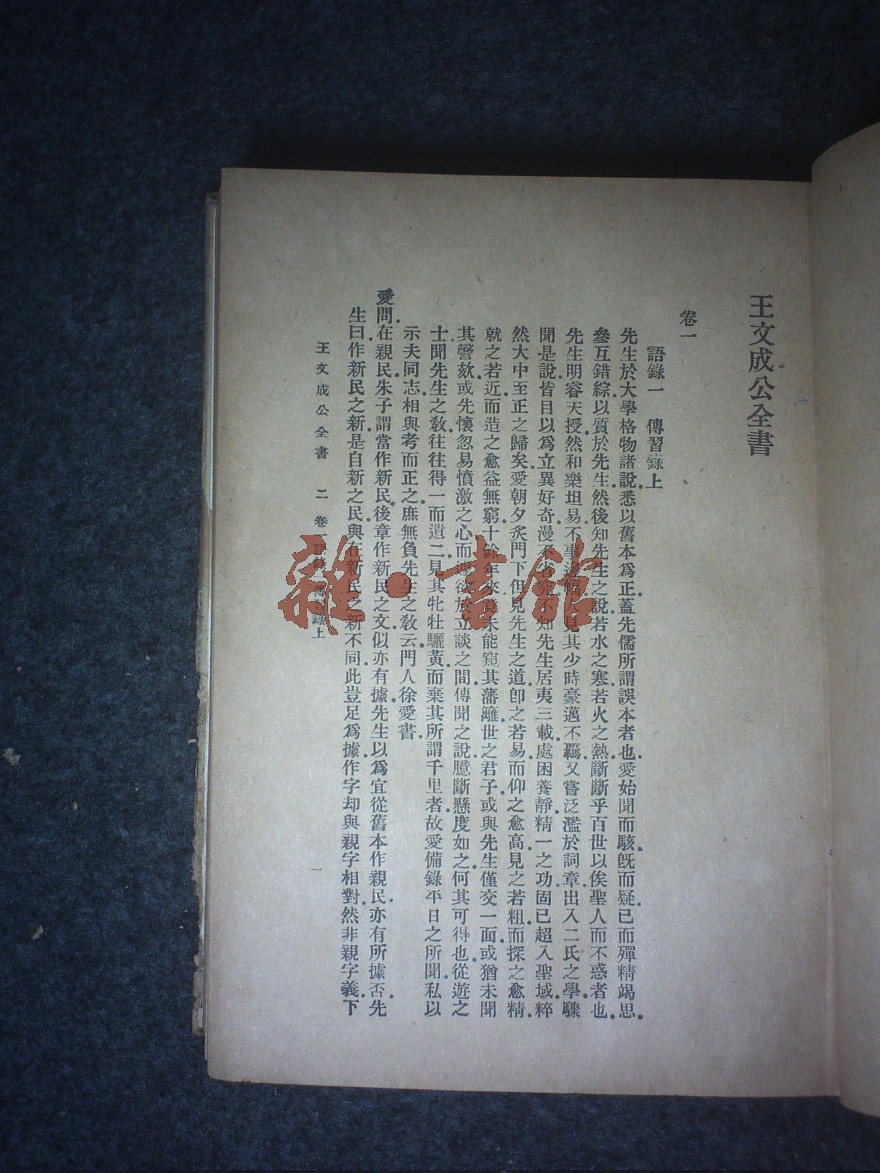 王文成公全書
卷一
語錄一　傳習錄上
先生於大學格物諸說悉以舊本爲正蓋先儒所謂誤本者也愛始聞而駭旣而疑已而殫精竭思
參互錯綜以質於先生然後知先生之說若水之寒若火之熱斷斷乎百世以俟聖人而不惑者也
先生明睿天授然和樂坦易不事邊見其少時豪邁不羈又嘗泛濫於詞章出入二氏之學驟
聞是說皆目以爲立異好奇漫不知先生居夷三載處困養靜精一之功固已超入聖域粹
然大中至正之歸矣愛朝夕炙門下但見先生之道卽之若易而仰之愈高見之若粗而探之愈精
就之若近而造之愈益無窮十餘年來未能窺其藩籬世之君子或與先生僅交一面或猶未聞
其謦欬或先懷忽易憤激之心而欲於立談之間傳聞之說臆斷懸度如之何其可得也從遊之
士聞先生之敎往往得一而遺二見其牝牡驪黃而棄其所謂千里者故愛備錄平日之所聞私以
示夫同志相與考而正之庶無負先生之敎云門人徐愛書
愛問在親民朱子謂當作新民後章作新民之文似亦有據先生以爲宜從舊本作親民亦有所據否先
生曰作新民之新是自新之民與在新民之新不同此豈足爲據作字却與親字相對然非親字義下
王文成公全書　二　卷一　錄上　一
雜·書館